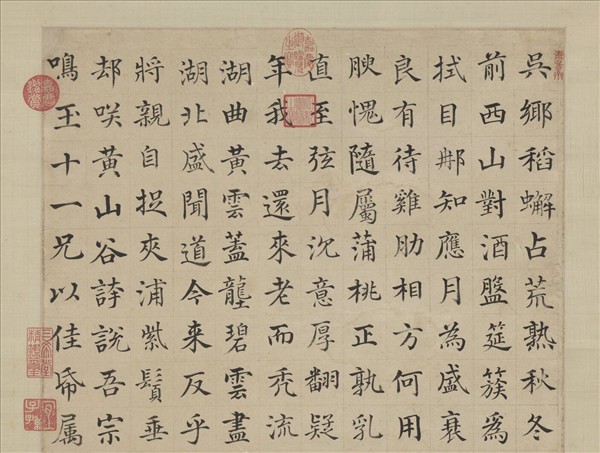 吳鄉稻蠏占荒熟秋冬
前西山對酒盤筵簇為
拭目那知應月為盛衰
良有待雞肋相方何用
腴愧隨屬蒲桃正孰乳
直至弦月沉意厚翻疑
年我去還來老而禿流
湖曲黃雲蓋壟碧雲盡
湖北盛聞道今来反乎
將親自捉夾浦紫鬚垂
却咲黃山谷誇說吾宗
鳴玉十一兄以佳帋属